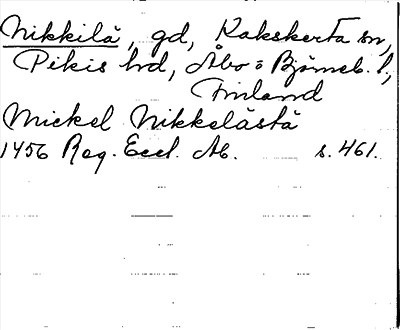 Nikkilä, gd, Kakskerta sn,
Pikis hd, Åbo o Björneb. l,
Finland
Mickel Nikkelästä
1456 Reg. Eccl. Ab. s. 461.